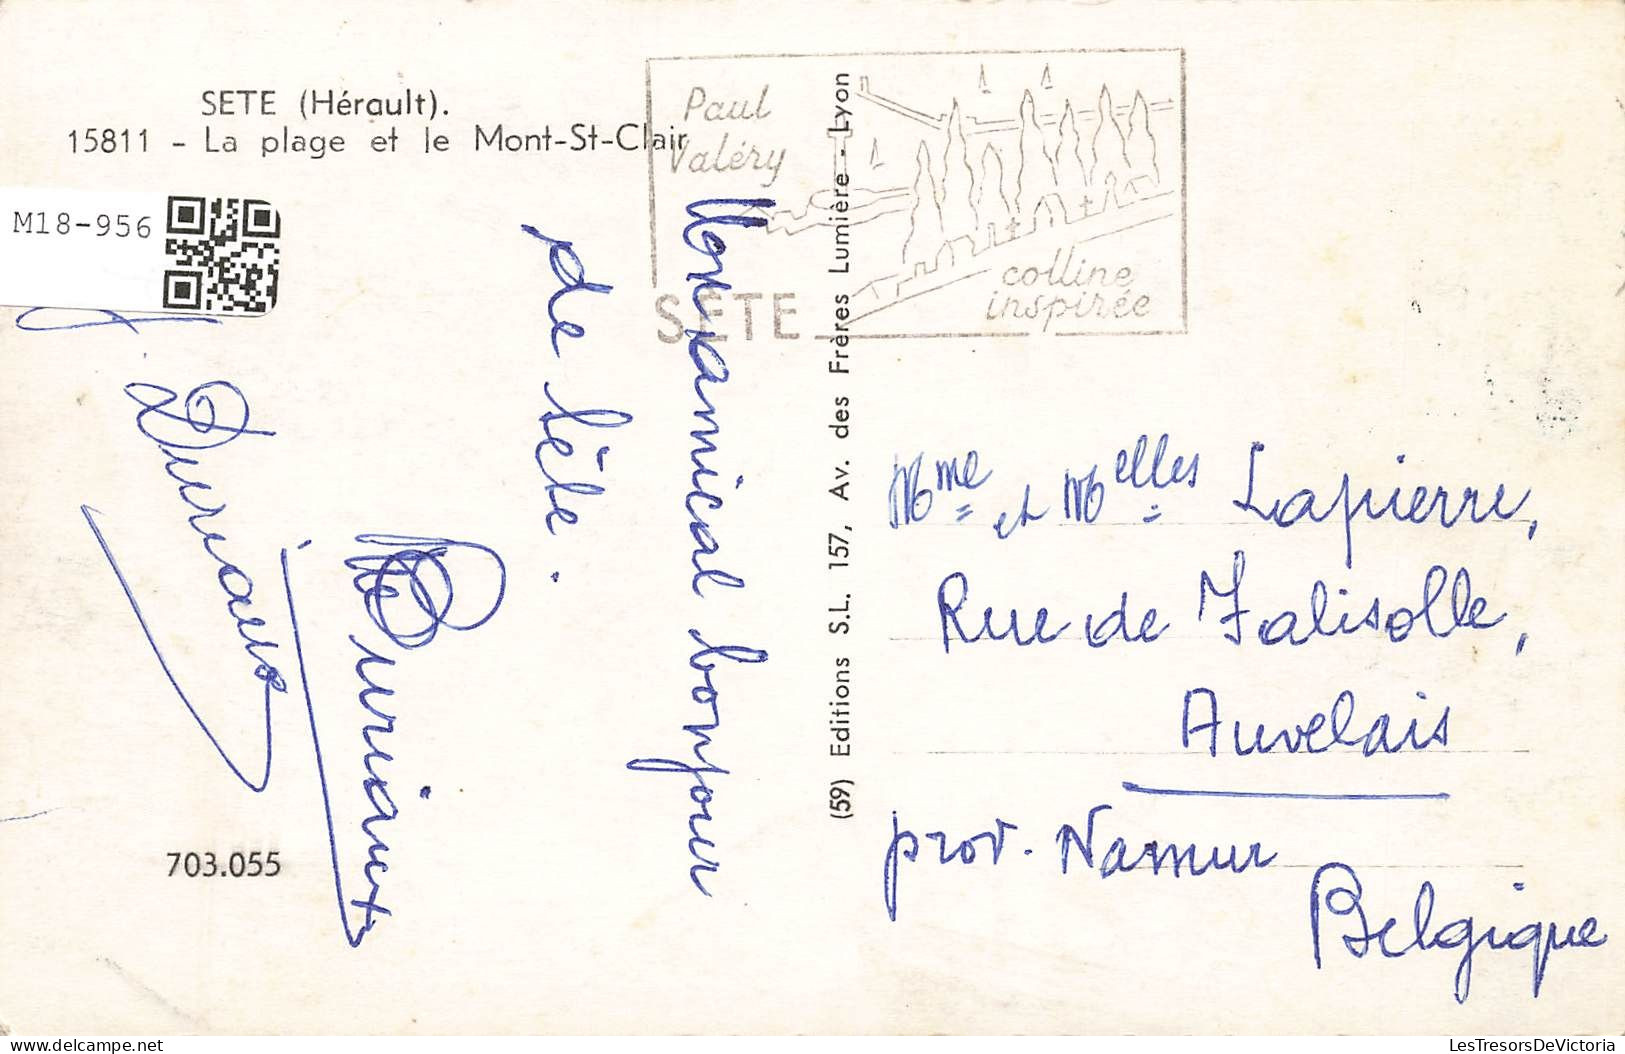 SETE (Hérault).
15811 - La plage et le Mont-St-Clair
M18-956
Paul
Valéry
colline
inspirée
SETE
(59) Editions S.L. 157, Av. des Frères Lumière - Lyon
amical bonjour
de l'été.
J. Durіaux
703.055
Mme et Melles Lapierre,
Rue de Falisolle,
Auvelais
prov. Namur
Belgique
delcampe.net
LesTresorsDeVictoria